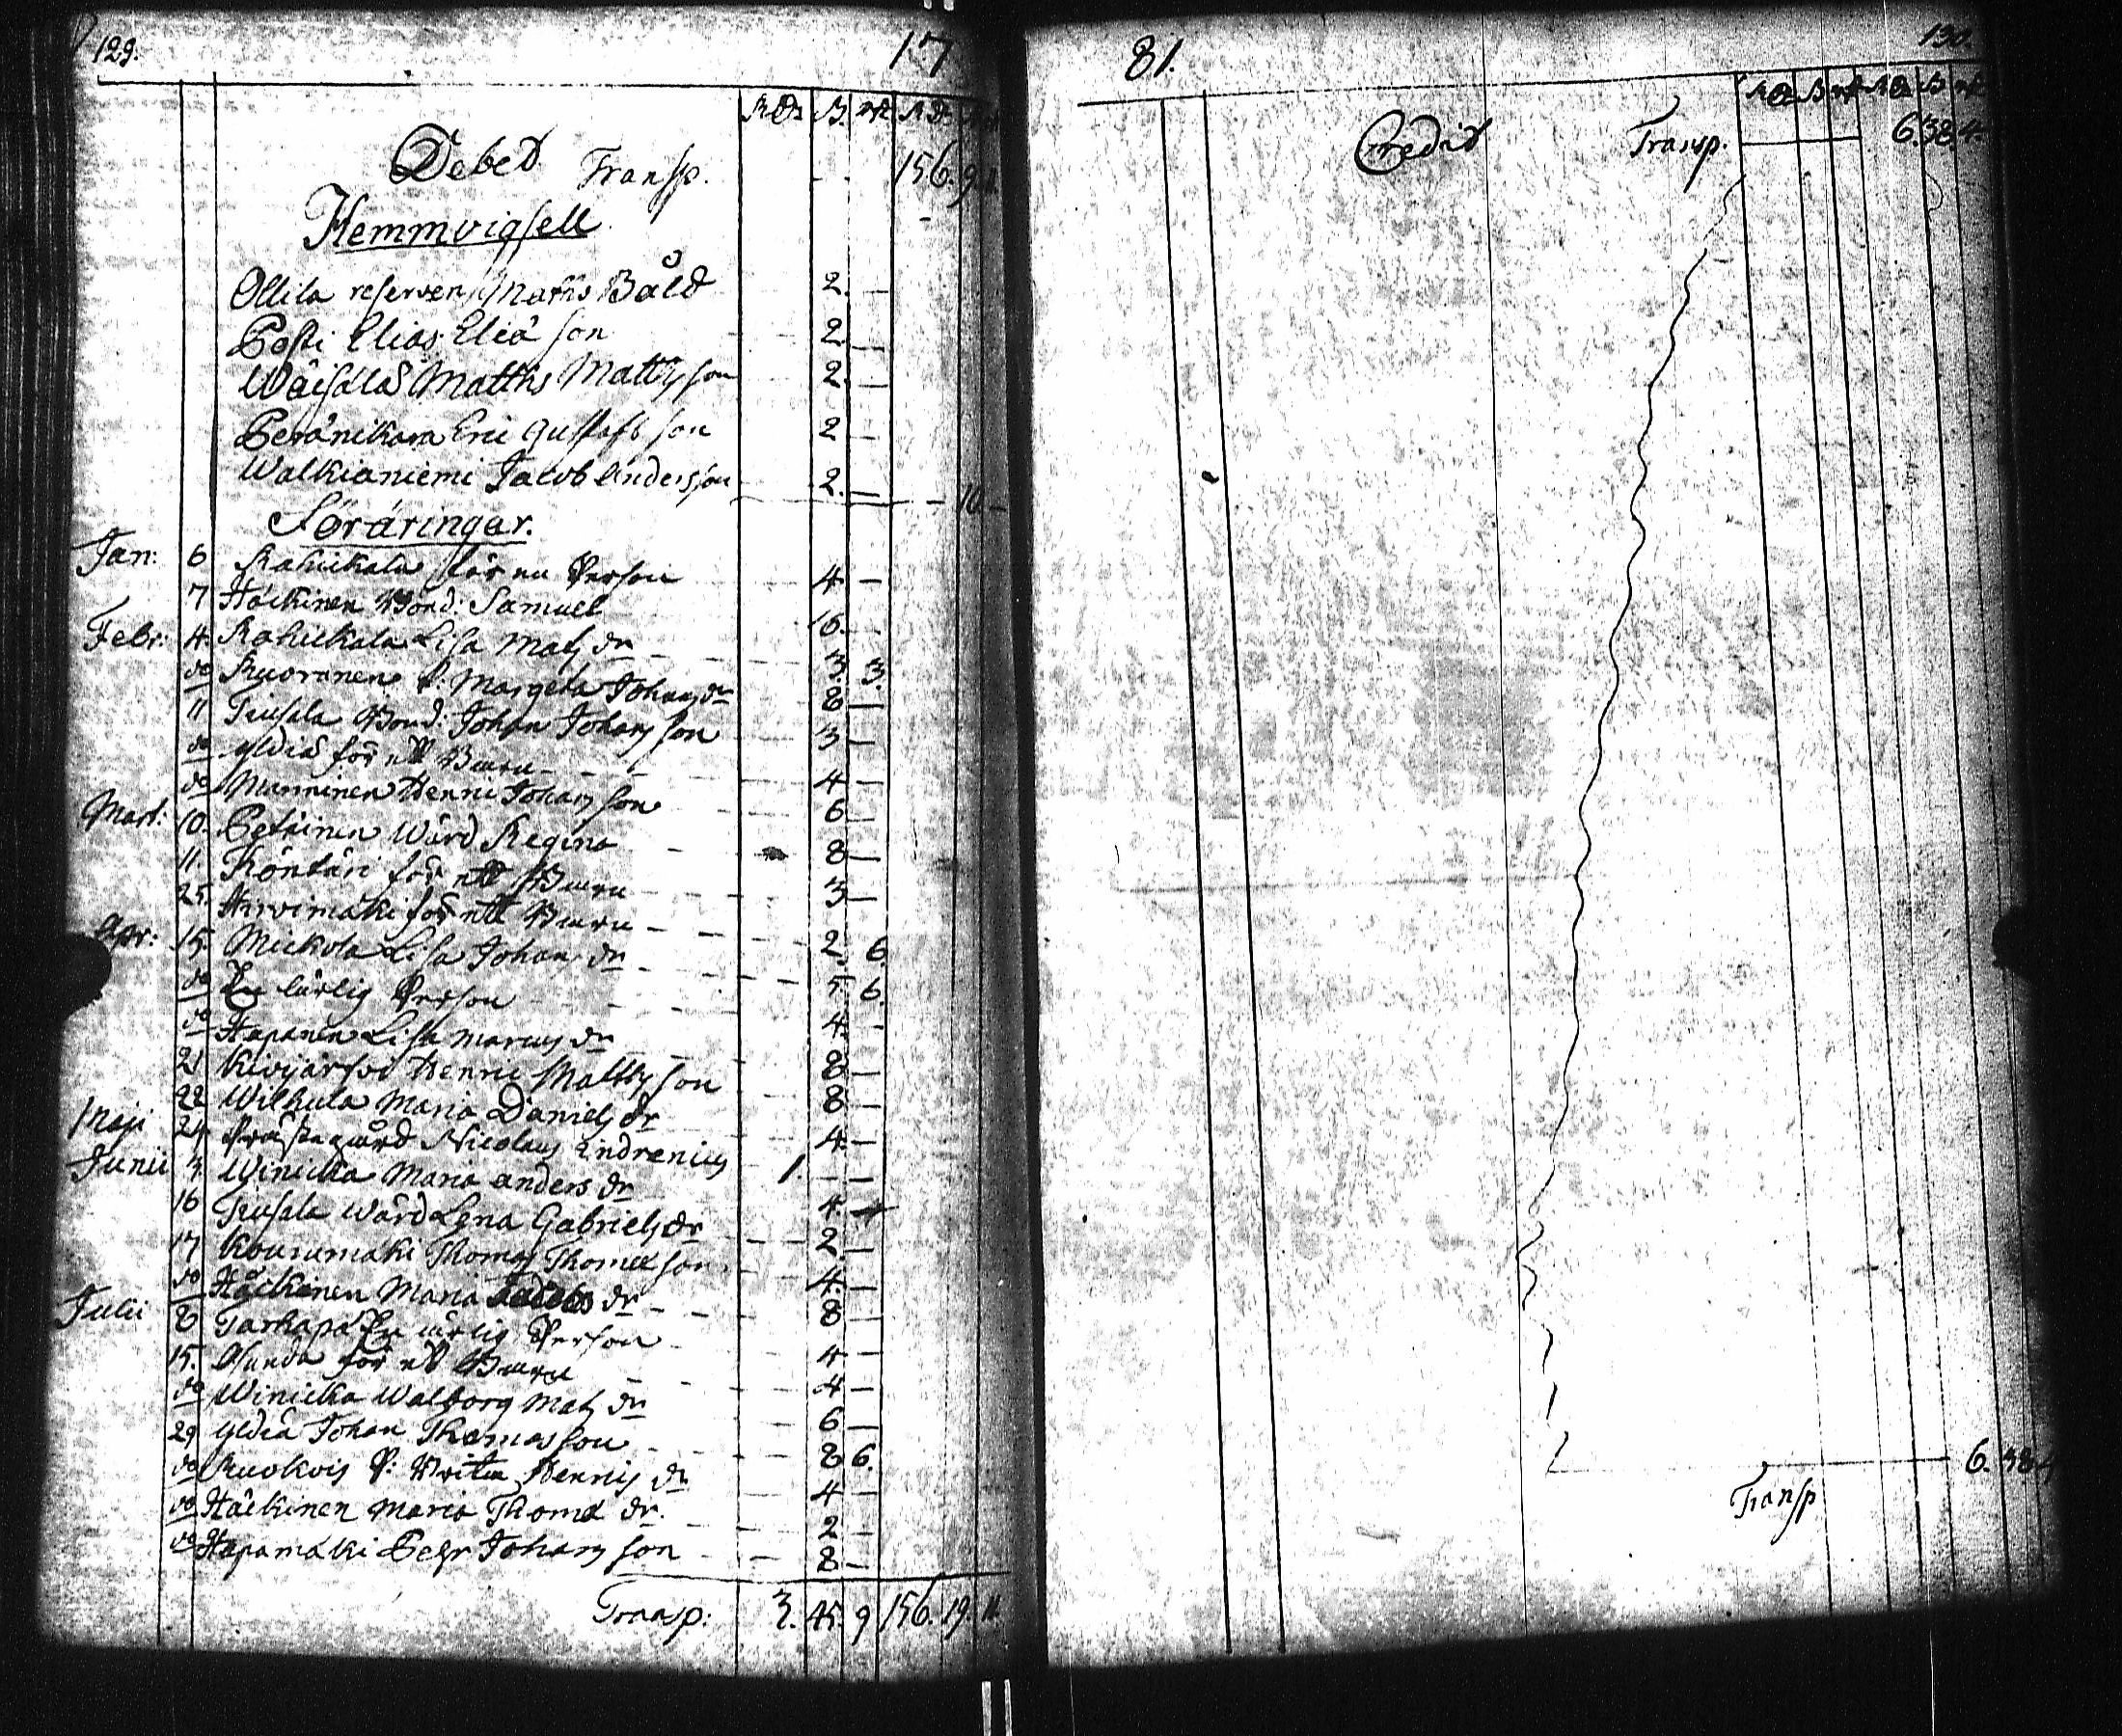 129. 17
Rdr ß. rst Rdr
Debet Transp. 156. 9. 11.
Hemmvigsell
Ollila reserven Matts Båld 2. —
Påsti Elias Eliæ son 2. —
Wäisälä Matths Matthsson 2. —
Peränikara Eric Gustafs son 2 —
Walkianiemi Jacob Andersson 2. — 10. —
Töräringar.
Jan: 6 Rahiikala för en Person 4 —
7 Häckinen Bond: Samuel 16. —
Febr: 4. Rahiikala Lisa Mats dr 3. 3.
do Ruoranen P. Margeta Johans dr 8 —
11 Teusala Bond: Johan Johans son 3 —
do Yldiä för ett Barn 4 —
do Manninen Henric Johans son 6 —
Mart: 10. Petäinen Wärd Regina 8 —
11. Köntäri för ett Barn 3 —
25. Hirvimäki för ett Barn
Apr: 15. Mickola Lisa Johans dr 2. 6.
do En ärlig Person 5. 6.
do Hapanen Lisa Marcus dr 4. —
21 Kivijärfvi Henric Matths son 8 —
22 Wilkula Maria Daniels dr 8 —
Maji 24 Prästegård Nicolaus Indrenius 4. —
Junii 3. Winicka Maria Anders dr 1. — —
16 Teusala Wärd Lena Gabriels dr 4
17 Kourumäki Thomas Thomæ son 2. —
do Häckinen Maria Jacobs dr 4. —
Julii 8 Tarhapä En ärlig Person 8 —
15. Asunda för ett Barn 4 —
do Winicka Walborg Mats dr 4 —
29 Yldiä Johan Thomas son 6 —
do Ruokois P: Brita Henrics dr 8 6.
do Häckinen Maria Thomæ dr. 4 —
do Hapamäki Pehr Johans son 2 —
8 —
Transp: 3. 45. 9 156. 19. 11.
81. 130.
Rdr ß rst Rdr ß rst
Credit Transp. 6. 38. 4.
6. 38.
Transp